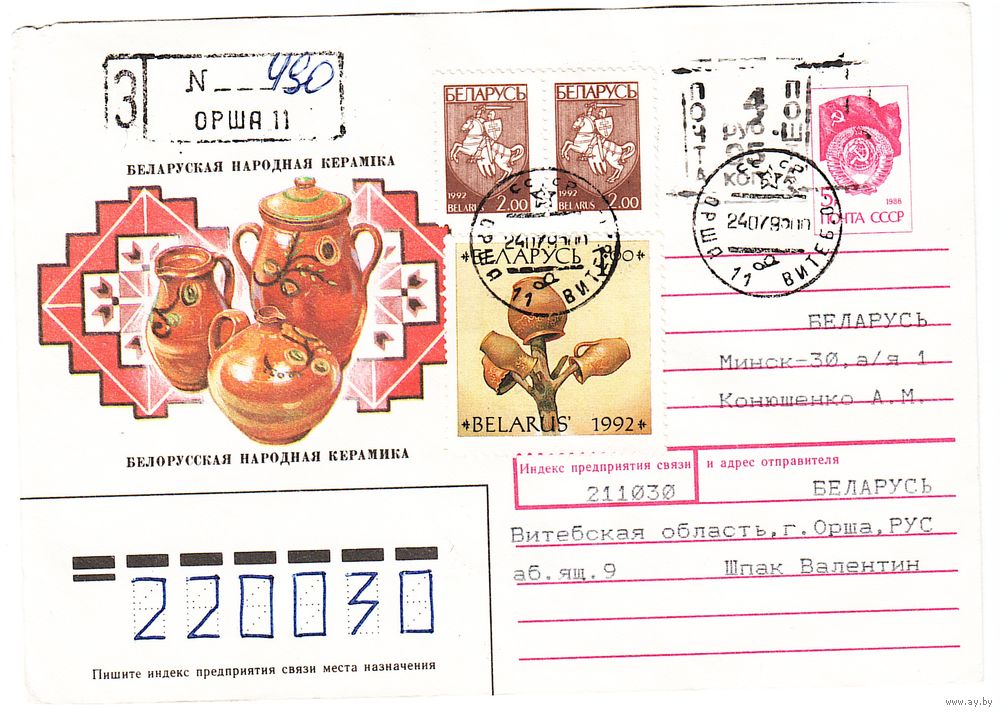 З N 490
ОРША 11
БЕЛАРУСКАЯ НАРОДНАЯ КЕРАМІКА
БЕЛОРУССКАЯ НАРОДНАЯ КЕРАМИКА
БЕЛАРУСЬ БЕЛАРУСЬ
1992 1992
BELARUS 2.00 BELARUS 2.00
БЕЛАРУСЬ
BELARUS' 1992
СССР
ОРША
ВИТЕБ
11
СССР
ОРША
ВИТЕБ
11
коп
5
1988
ПОЧТА СССР
БЕЛАРУСЬ
Минск-30,а/я 1
Конюшенко А.М.
Индекс предприятия связи и адрес отправителя
211030 БЕЛАРУСЬ
Витебская область,г.Орша,РУС
аб.ящ.9 Шпак Валентин
220030
Пишите индекс предприятия связи места назначения
www.ay.by